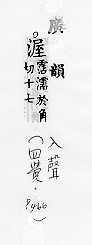 廣韻
。渥霑濡於角
切十七
入聲
(四覺·
P466)